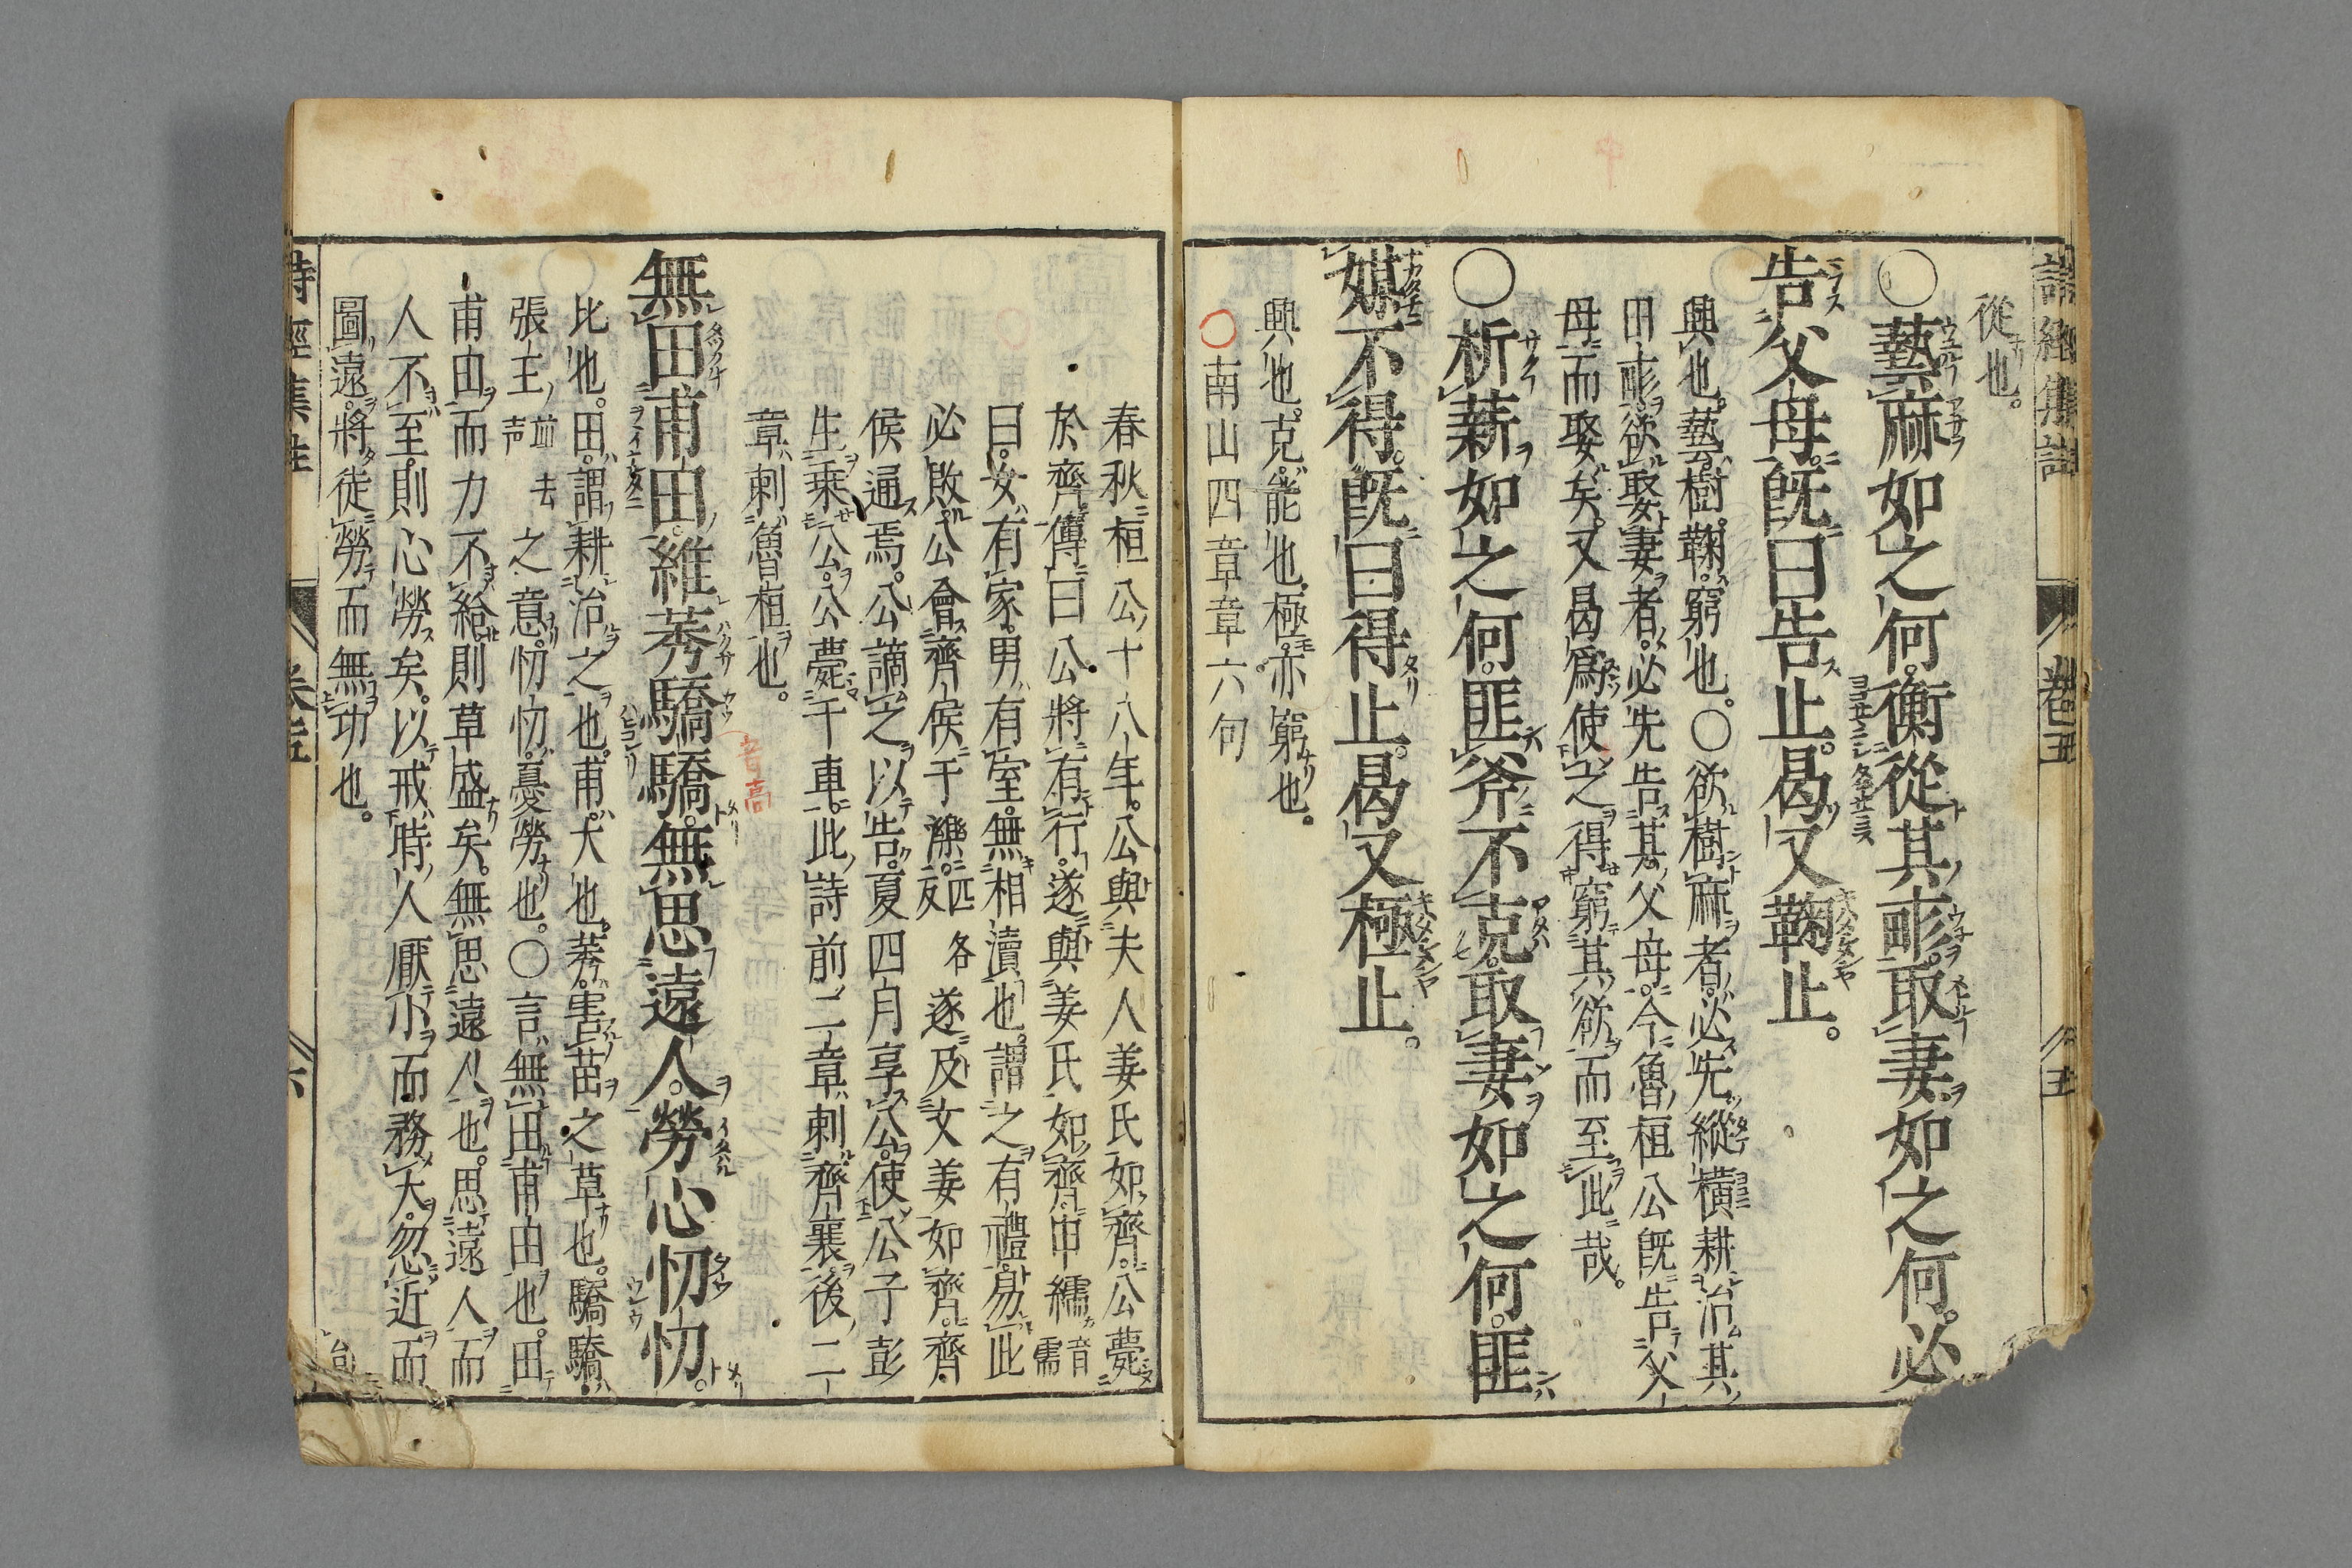 詩經集註 卷五 五
從也。
○藝麻如之何。衡從其畝。取妻如之何。必
告父母。既曰告止。曷又鞠止。
興也。藝。樹。鞠。窮也。○欲樹麻者。必先縱横耕治其
田畝。欲娶妻者。必先告其父母。今魯桓公既告父
母而娶矣。又曷爲使之得窮其欲而至此哉。
○析薪如之何。匪斧不克。取妻如之何。匪
媒不得。既曰得止。曷又極止。
興也。克。能也。極。亦窮也。
○南山四章章六句
春秋桓公十八年。公與夫人姜氏如齊。公薨
於齊。傳曰公將有行。遂與姜氏如齊。申繻音繻
曰。女有家。男有室。無相瀆也。謂之有禮。易此
必敗。公會齊侯于濼。匹各反遂及文姜如齊。齊
侯通焉。公謫之以告。夏四月享公。使公子彭
生乘公。公薨于車。此詩前二章刺齊襄。後二
章刺魯桓也。
無田甫田。維莠驕驕。無思遠人。勞心忉忉。
音高
比也。田。謂耕治之也。甫。大也。莠。害苗之草也。驕驕。
張王並去声之意。忉忉。憂勞也。○言無田甫田也。田
甫田而力不給。則草盛矣。無思遠人也。思遠人而
人不至。則心勞矣。以戒時人厭小而務大。忽近而
圖遠。將徒勞而無功也。
詩經集註 卷五 六